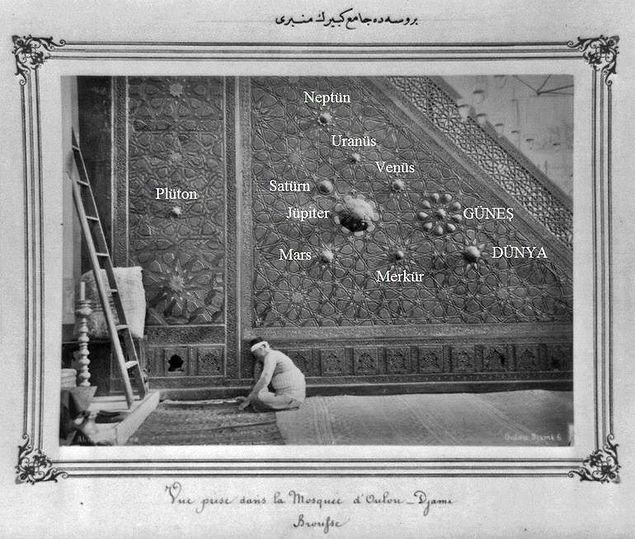 بروسه ده جامع كبيرك منبرى
Neptün
Uranüs
Venüs
Satürn
Plüton
Jüpiter
GÜNEŞ
Mars
DÜNYA
Merkür
Oulou Djami 6
Vue prise dans la Mosquée d'Oulou_Djami
Brousse